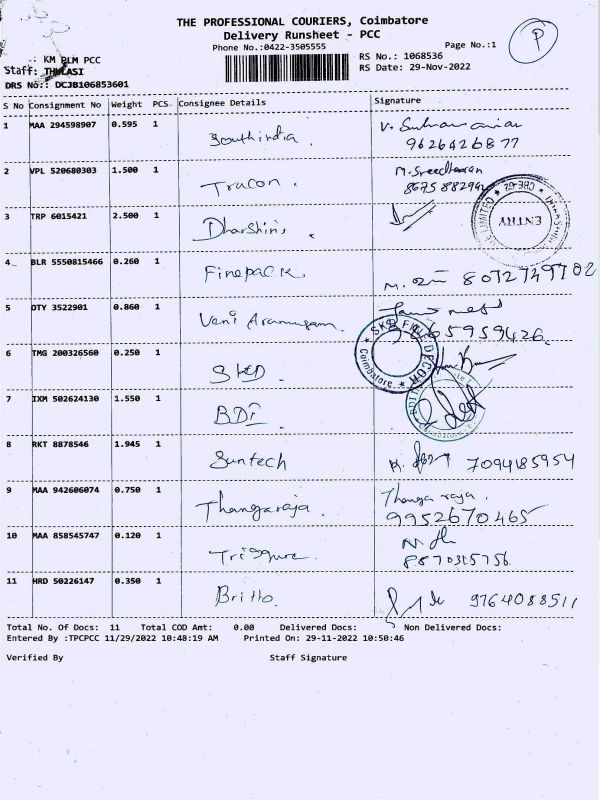 THE PROFESSIONAL COURIERS, Coimbatore
Delivery Runsheet - PCC
Phone No.:0422-3505555
Page No.:1
P
KM PLM PCC
RS No.: 1068536
Staff: THULASI
RS Date: 29-Nov-2022
DRS No.: DCJB106853601
S No Consignment No Weight PCS Consignee Details Signature
1 MAA 294598907 0.595 1 Southindia.
9626426877
2 VPL 520680303 1.500 1 Tracon. M.Sreedharan
3 TRP 6015421 2.500 1 Dharshini
ENTRY
4 BLR 5550815466 0.260 1 Finepack.
5 OTY 3522901 0.860 1 Veni Arumugam.
6 TMG 200326560 0.250 1 SKD.
SKD DECOR
Coimbatore
7 IXM 502624130 1.550 1 BDI
8 RKT 8878546 1.945 1 Suntech 7094185954
9 MAA 942606074 0.750 1 Thangaraja. Thanga raja.
9952670465
10 MAA 858545747 0.120 1
11 HRD 50226147 0.350 1 Britto. 9764088511
Total No. Of Docs: 11 Total COD Amt: 0.00 Delivered Docs: Non Delivered Docs:
Entered By :TPCPCC 11/29/2022 10:48:19 AM Printed On: 29-11-2022 10:50:46
Verified By Staff Signature